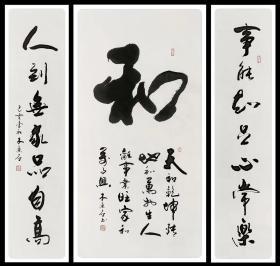 事能知足心常樂
和
天和乾坤
地和萬物生人
和事業旺家和
萬事興
人到無求品自高